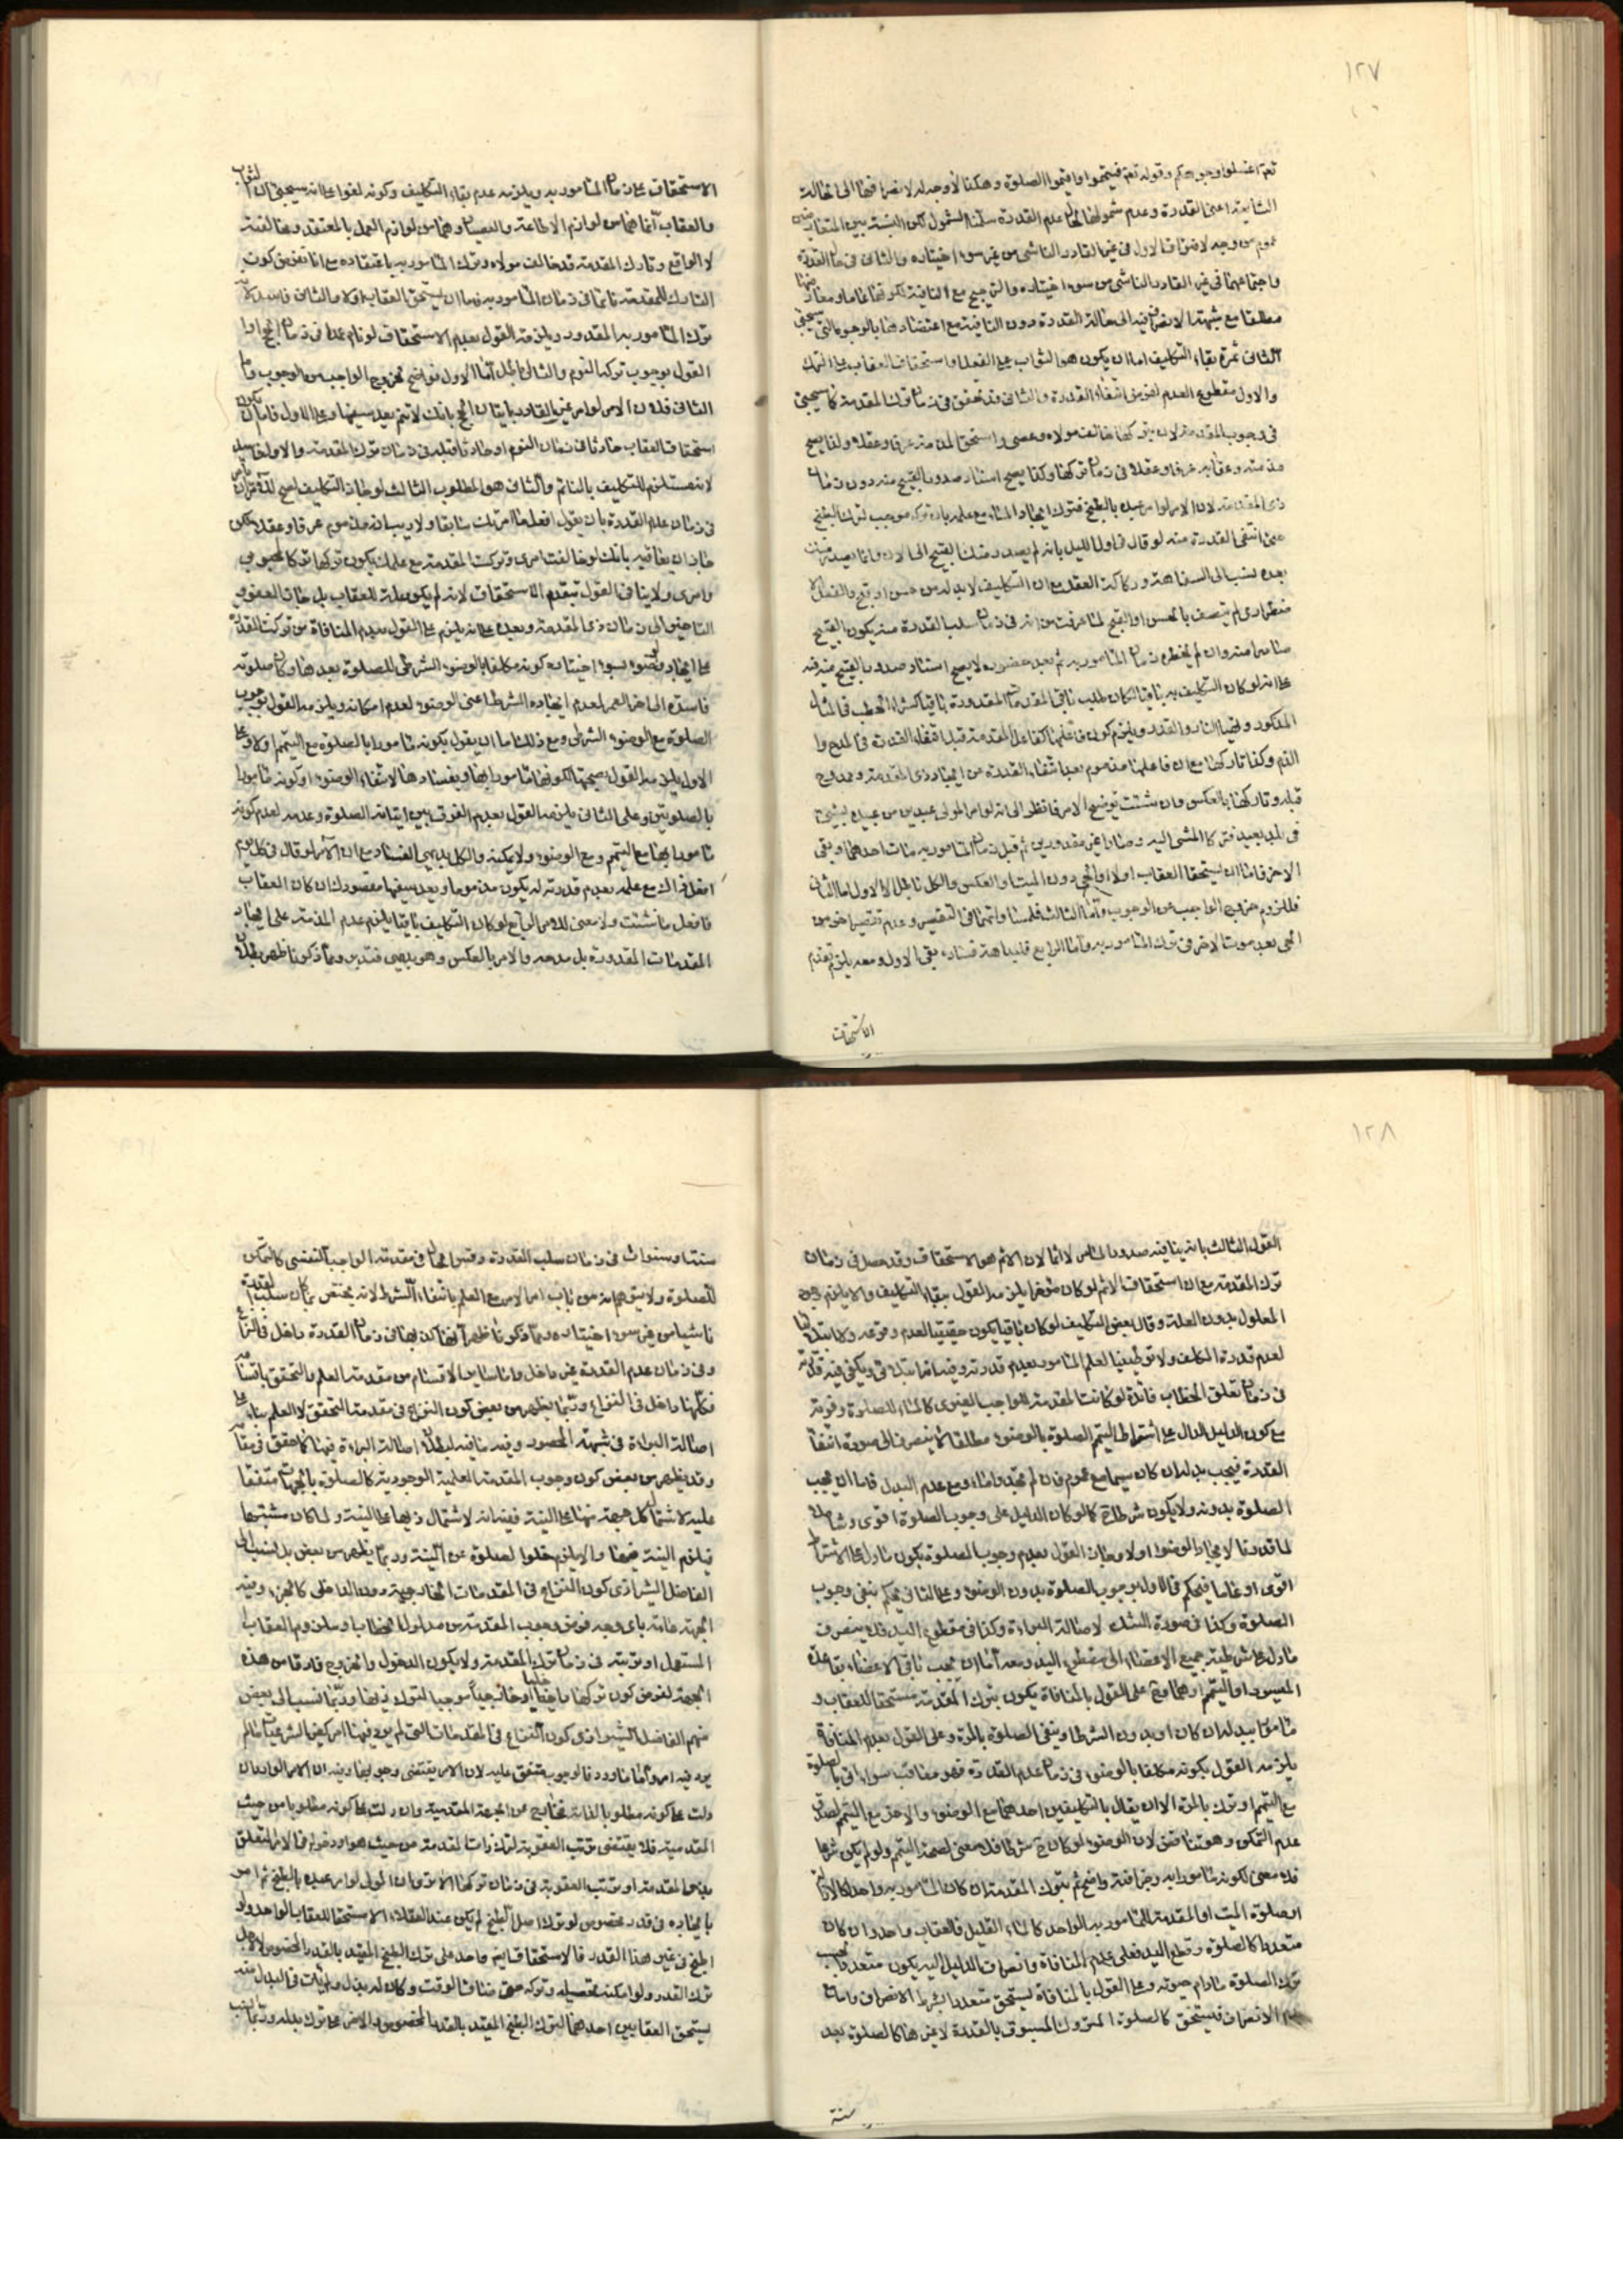 ١٢٧
تعه اغسلوا وجوهكم وقوله تعه فتيمموا واقيموا الصلوة وهكذا لا وجه له لانصرافها الى الحالة
السابقة اعنى القدرة وعدم شمولها لحال عدم القدرة سلمنا الشمول لكن النسبة بين المتعارضين
عموم من وجه لافتراق الاول فى غير القادر الناشى من غير سوء اختياره والثانى فى حال القدرة
واجتماعهما فى غير القادر الناشى من سوء اختياره والترجيح مع النافية لكونها
مطلقا مع شبهة الانصراف فيه الى حالة القدرة دون النافية مع اعتضادها بالوجوه التى سيجئ
الثانى ثمرة بقاء التكليف اما ان يكون هو الثواب على الفعل او استحقاق العقاب على الترك
والاول مقطوع العدم لفرض انتفاء القدرة والثانى قد تحقق فى زمان ترك المقدمة كما سيجئ
فى وجوب المقدمة لان بتركها خالف مولاه وعصى واستحق المذمة عرفا وعقلا ولذا يصح
مذمته وعقابه عرفا وعقلا فى زمان تركها وكذا يصح اسناد صدور القبيح منه دون زمان
ذى المقدمة لان الامر لو امر عبده بالطبخ فترك ايجاد الماء مع علمه بان تركه موجب لترك الطبخ
حتى انتفى القدرة منه لو قال فى اول الليل بانه لم يصدر منك القبيح الى الان وانما يصدر منك
بعده نسب الى السفاهة وركاكة العقل مع ان التكليف لا بد له من حسن او قبح والفعل الا
ضطرارى لم يتصف بالحسن او القبح لما عرفت من انه فى زمان سلب القدرة منه يكون القبيح
صادرا منه وان لم يحضره زمان المامور به ثم بعد حضوره لا يصح اسناد صدور القبيح منه فيه
على انه لو كان التكليف به باقيا لكان طلب باقى المقدمات المقدورة باقيا كشراء الحطب فى المثال
المذكور واخذ النار والقدر ويلزم كون فاعلها كفاعل المقدمة قبل انتفاء القدرة فى المدح او
الذم وكذا تاركها مع ان فاعلها مذموم بعد انتفاء القدرة من ايجاد ذى المقدمة وممدوح
قبله وتاركها بالعكس وان شئت توضيح الامر فانظر الى انه لو امر المولى عبدين من عبيده بشئ
فى بلد بعيد فتركا المشى اليه وصارا غير مقدورين ثم قبل زمان المامور به مات احدهما وبقى
الاخر فاما ان يستحقا العقاب او لا او الحى دون الميت او العكس والكل باطل الا الاول اما الثانى
فللزوم خروج الواجب عن الوجوب واما الثالث فلمساواتهما فى التقصير وعدم تقصير اخر من
الحى بعد موت الاخر فى ترك المامور به واما الرابع فلبداهة فساده بقى الاول ومعه يلزم تقدم
الاستحقاق
الاستحقاق على زمان المامور به ويلزمه عدم بقاء التكليف وكونه لغوا على انه سيجئ ان الثواب
والعقاب انما هما من لوازم الاطاعة والعصيان وهما من لوازم العمل بالمعتقد ومخالفته
لا الواقع وتارك المقدمة قد خالف مولاه وترك المامور به باعتقاده مع انا نفرض كون
التارك للمقدمة نائما فى زمان المامور به فاما ان يستحق العقاب او لا والثانى فاسد لانه
ترك المامور به المقدور ويلزمه القول بعدم الاستحقاق لو نام عمدا فى زمان الحج او
القول بوجوب ترك النوم والتالى باطل اما الاول فواضح لخروج الواجب عن الوجوب واما
الثانى فلان الامر لو امر غير القادر باتيان الحج بانك لا تنم يعد سفيها وعلى الاول فاما ان يكون
استحقاق العقاب حادثا فى زمان النوم او حادثا قبله فى زمان ترك المقدمة والاول فاسد
لانه مستلزم للتكليف بالنائم والثانى هو المطلوب الثالث لو جاز التكليف لصح للامر ان يامر
فى زمان عدم القدرة بان يقول افعل ما امرتك سابقا ولا ريب انه مذموم عرفا وعقلا لكن
جاز ان يعاقبه بانك لو خالفت امرى وتركت المقدمة مع علمك بكون تركها تركا لمحبوبى
وامرى ولا ينافى القول بتقدم الاستحقاق لانه لم يكن علة للعقاب بل جاز العفو و
التاخير الى زمان ذى المقدمة وبعده على انه يلزم على القول بعدم المنافاة من تركت القدرة
على ايجاد وضوء بسوء اختياره كونه مكلفا بالوضوء الشرطى للصلوة بعدها وكان صلوته
فاسدة الى اخر العمر لعدم ايجاده الشرط اعنى الوضوء لعدم امكانه ويلزمه القول بوجوب
الصلوة مع الوضوء الشرطى ومع ذلك اما ان يقول بكونه مامورا بالصلوة مع التيمم او لا وعلى
الاول يلزمه القول بصحتها لكونها مامورا بها وبفسادها لانتفاء الوضوء او كونه مامورا
بالصلوتين وعلى الثانى يلزمه القول بعدم الفرق بين اتيانه الصلوة وعدمه لعدم كونه
مامورا بها مع التيمم ومع الوضوء ولا يمكنه والكل بديهى الفساد مع ان الامر لو قال فى كل يوم
افعل ذاك مع علمه بعدم قدرته له يكون مذموما ويعد سفيها مقصودك ان كان العقاب
فافعل ما شئت ولا معنى للامر الرابع لو كان التكليف باقيا يلزم عدم المذمة على ايجاد
المقدمات المقدورة بل مدحه والامر بالعكس وهو بديهى فتدبر ومما ذكرنا ظهر بطلان
١٢٨
القول الثالث بانه ينافيه صدور المامور لا اثما لان الاثم هو الاستحقاق وقد حصل فى زمان
ترك المقدمة مع ان استحقاق الاثم لو كان مؤخرا يلزمه القول ببقاء التكليف والا يلزم وجود
المعلول بدون العلة وقال بعض التكليف لو كان باقيا يكون حقيقيا لعدم وقوعه ولا ابتلائيا
لعدم قدرة المكلف ولا توطينيا لعلم المامور بعدم قدرته وفيه انه ابتلائى ويكفى فيه قدرته
فى زمان تعلق الخطاب فائدة لو كانت المقدمة للواجب الغيرى كالماء للصلوة وفوته
مع كون الدليل الدال على اشتراط التيمم الصلوة بالوضوء مطلقا لا ينصرف الى صورة انتفاء
القدرة فيجب بدله ان كان سيما مع عموم فان لم تجدوا ماء ومع عدم البدل فاما ان يجب
الصلوة بدونه ولا يكون شرطا ح كما لو كان الدليل على وجوب الصلوة اقوى وشاملا
لما قدرنا لايجاد الوضوء او لا وجاز القول بعدم وجوب الصلوة بكون ما دل على الاشتراط
اقوى او عاما فيحكم فى الاول بوجوب الصلوة بدون الوضوء وعلى الثانى يحكم بنفى وجوب
الصلوة وكذا فى صورة الشك لاصالة البراءة وكذا فى مقطوع اليد فلا ينصرف
ما دل على شرطية جميع الاعضاء الى مقطوع اليد ومعه اما ان يجب باقى الاعضاء بقاعدة
الميسور او التيمم او هما وح على القول بالمنافاة يكون بترك المقدمة مستحقا للعقاب و
مامورا ببدله ان كان او بدون الشرط او بنفى الصلوة بالمرة وعلى القول بعدم المنافاة
يلزمه القول بكونه مكلفا بالوضوء فى زمان عدم القدرة فهو معاقب سواء اتى بالصلوة
مع التيمم او ترك بالمرة الا ان يقال بالتكليفين احدهما مع الوضوء والاخر مع التيمم لصدق
عدم التمكن وهو تناقض لان الوضوء لو كان ح شرطا فلا معنى لصحة التيمم ولو لم يكن شرطا
فلا معنى لكونه مامورا به وخرافته واضح ثم بترك المقدمة ان كان المامور به واحدا كالاناء
او صلوة الميت او المقدمة للمامور به الواحد كالماء القليل فالعقاب واحد وان كان
متعددا كالصلوة وقطع اليد فعلى عدم المنافاة وانصراف الدليل اليه يكون متعددا بحسب
ترك الصلوة مادام حيوته وعلى القول بالمنافاة يستحق متعددا بشرط الانصراف واما مع
عدم الانصراف فيستحق كالصلوة المتروك المسبوق بالقدرة لا غيرها كالصلوة بعد
سنة
سنة او سنوات فى زمان سلب القدرة وقس الحال فى مقدمة الواجب النفسى كالتمكن
للصلوة ولا يتوهم انه من باب امر الامر مع العلم بانتفاء الشرط لانه يختص بما كان سلب القدرة
ناشيا من غير سوء اختياره ومما ذكرنا ظهر ايضا كل بها فى زمان القدرة داخل فى النزاع
وفى زمان عدم القدرة غير داخل واما سائر الاقسام من مقدمة العلم والتحقق باقسامه
فكلها داخل فى النزاع وربما يظهر من بعض كون النزاع فى مقدمة التحقق لا العلم بناء على
اصالة البراءة فى شبهة المحصور وفيه ما فيه لبطلان اصالة البراءة فيها كما حقق فى مقامه
وقد يظهر من بعض كون وجوب المقدمة العلمية الوجودية كالصلوة بالجهات متفقا
عليه لاشتمال كل جهة منها على النية ففيه انه لاشتمال ذيها على النية ولما كان مشتبها
فيلزم النية فيها والا يلزم خلو الصلوة عن النية وربما يظهر من بعض بل نسب الى
الفاضل الشيرازى كون النزاع فى المقدمات الخارجية دون الداخلى كالجزء وفيه
الجهة عامة باى وجه فرض وجوب المقدمة من مدلول الخطاب او ملزوم العقاب
المستعمل او ترتبه فى زمان ترك المقدمة ولا يكون الدخول والخروج فارقا من هذه
الجهة لفرض كون تركها داخليا او خارجيا موجبا لترك ذيها وربما نسب الى بعض
منهم الفاضل الشيرازى كون النزاع فى المقدمات التى لم يرد فيها امر كبعض الشرعيات ما لم
يرد فيه امر واما ما ورد فالوجوب متفق عليه لان الامر يقتضى وجوبها وفيه ان الامر الوارد ان
دلت على كونه مطلوبا لذاته فخارج عن الجهة المقدمية وان دلت على كونه مطلوبا من حيث
المقدمية فلا يقتضى ترتب العقوبة لترك ذات المقدمة من حيث هو او دخوله فى الامر المتعلق
بذى المقدمة او ترتب العقوبة فى زمان تركها الا ترى ان المولى لو امر عبده بالطبخ ثم امر
بايجاده فى قدر مخصوص لو ترك اصل الطبخ لم يكن عند العقلاء الا مستحقا للعقاب الواحد ولو
اطبخ فى غير هذا القدر فالاستحقاق ايضا واحد على ترك الطبخ المقيد بالقدر المخصوص لاجل
ترك القدر ولو امكنه تحصيله وتركه حتى ضاق الوقت وكان له بدل ولم يات فى البدل منه
يستحق العقابين احدهما لترك الطبخ المقيد بالقدر المخصوص والاخر على ترك بدله وربما نسب